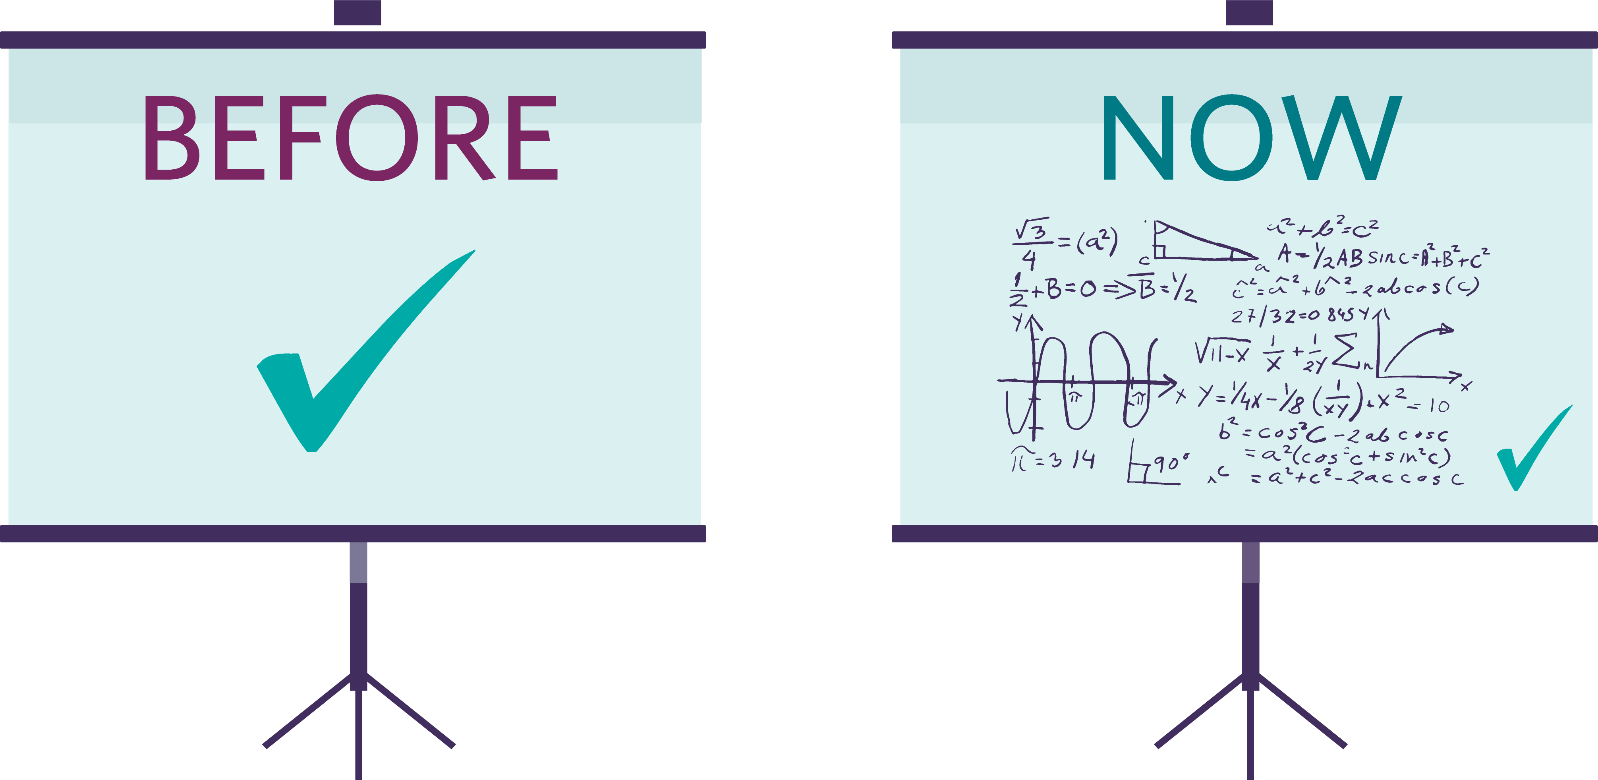 BEFORE
NOW
√3/4 = (a²)
c
a
a²+b²=c²
A=½AB sin c = A²+B²+C²
1/2+B=0⇒B̅=1/2
ĉ²=â²+b^²-2abcos(c)
27/32=0 845
Y
X
Y
π
π
X
√11-X 1/X + 1/2Y Σn
Y=1/4X-1/8(1/XY)+X²=10
b²=cos²C-2ab cosc
=a²(cos²c+sin²c)
=a²+c²-2accosc
π=3 14
90°